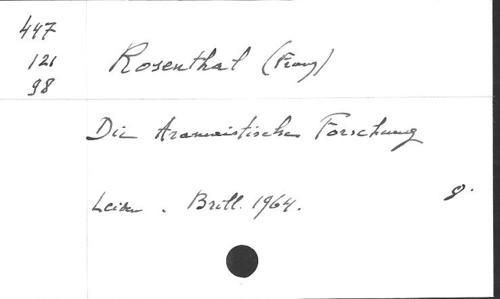 447
121
98
Rosenthal (Franz)
Die Aramaistische Forschung
Leiden. Brill. 1964.
8.